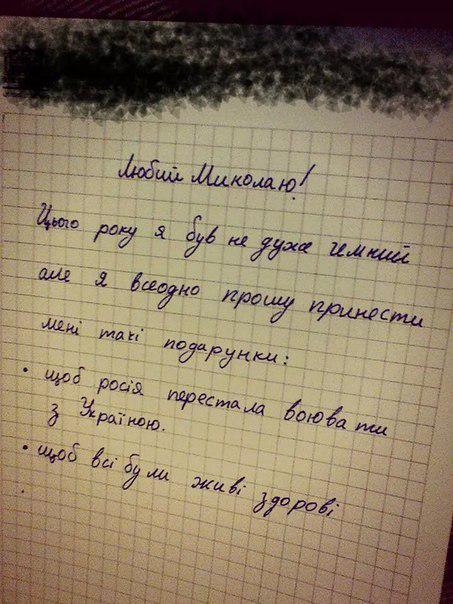 Любий Миколаю!
Цього року я був не дуже чемний
але я всеодно прошу принести
мені такі подарунки:
• щоб росія перестала воювати
з Україною.
• щоб всі були живі здорові